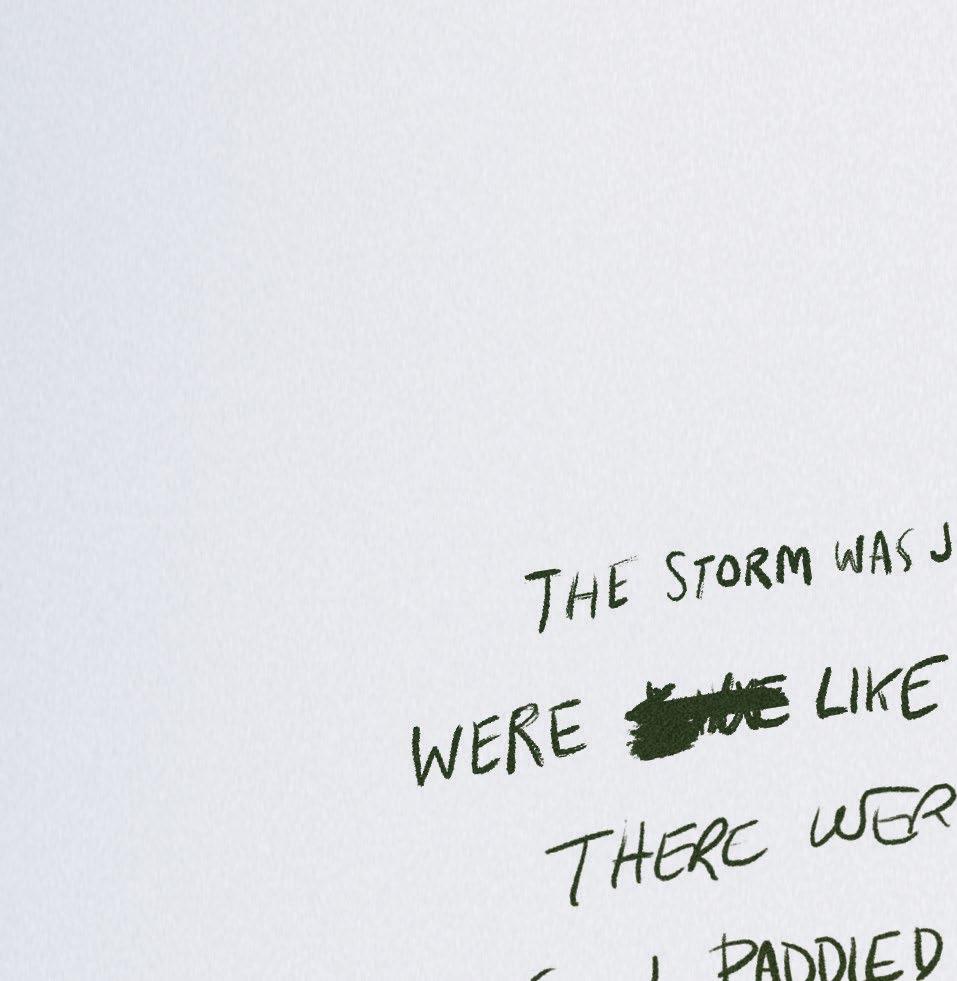 THE STORM WAS J
WERE LIKE
THERE WER
PADDLED